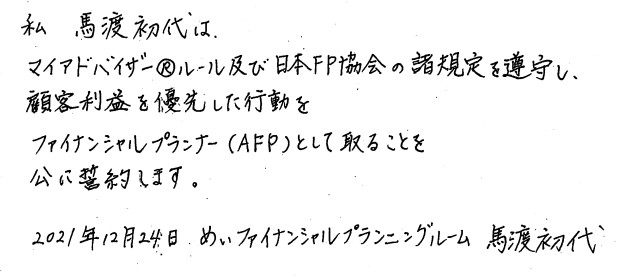 私 馬渡初代は、
マイアドバイザー®ルール及び日本FP協会の諸規定を遵守し、
顧客利益を優先した行動を
ファイナンシャルプランナー(AFP)として取ることを
公に誓約します。
2021年12月24日 めいファイナンシャルプランニングルーム 馬渡初代